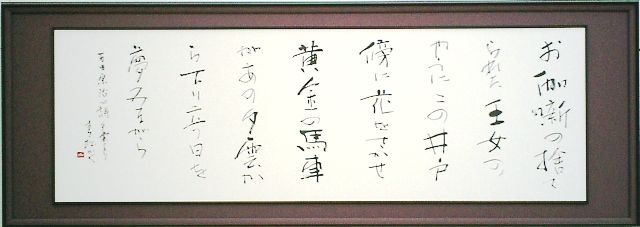 お伽噺の捨て
られた王女の
やうにこの井戸
傍に花をさかせ
黄金の馬車
があの夕雲か
ら下り立つ日を
夢みながら